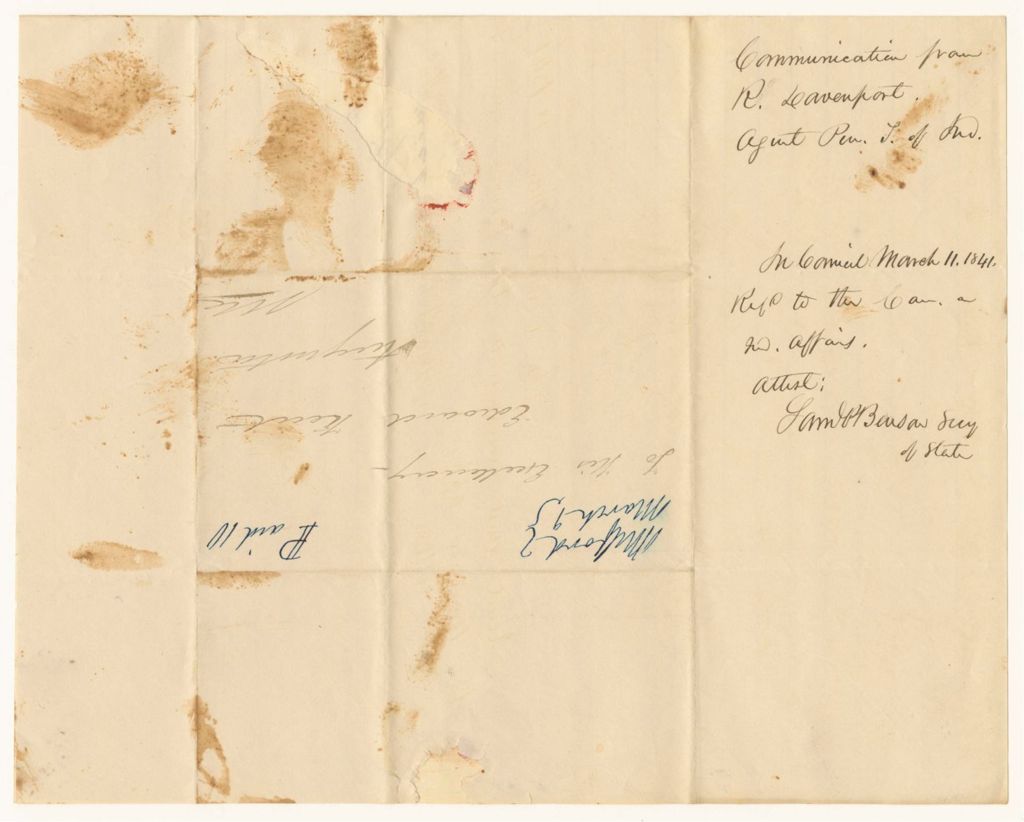 Communication from
R. Davenport.
Agent Pen. T. of Ind.
In Council March 11. 1841.
Ref'd to the Com. on
Ind. Affairs.
Attest:
Sam'l P Benson Secy
of State
Milford
March 9
Paid 10
To His Excellency
Edward Kent
Augusta
Me